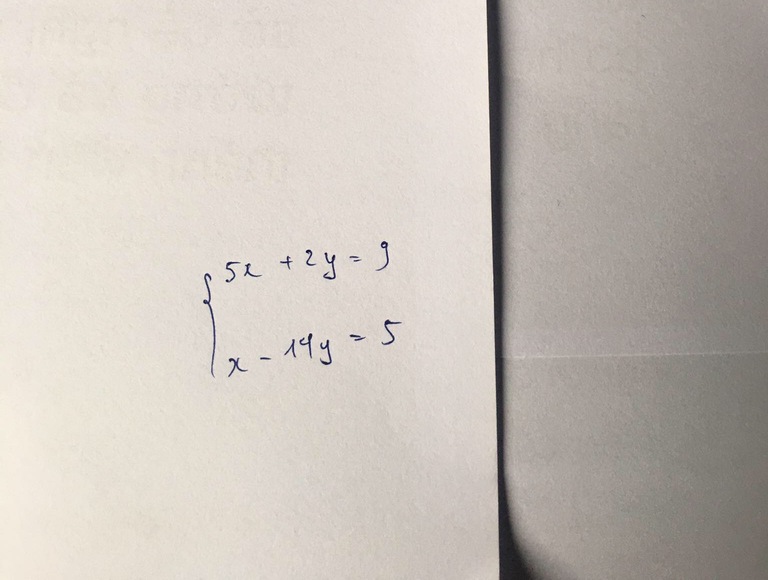 5x + 2y = 9
x - 14y = 5